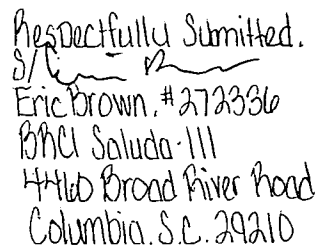 Respectfully Submitted.
S/
Eric Brown, #272336
BRCI Saluda-111
4460 Broad River Road
Columbia, S.C. 29210